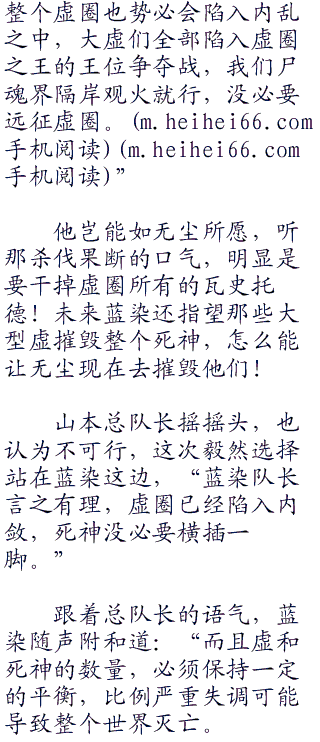 整个虚圈也势必会陷入内乱
之中，大虚们全部陷入虚圈
之王的王位争夺战，我们尸
魂界隔岸观火就行，没必要
远征虚圈。(m.heihei66.com
手机阅读)(m.heihei66.com
手机阅读)”
他岂能如无尘所愿，听
那杀伐果断的口气，明显是
要干掉虚圈所有的瓦史托
德！未来蓝染还指望那些大
型虚摧毁整个死神，怎么能
让无尘现在去摧毁他们！
山本总队长摇摇头，也
认为不可行，这次毅然选择
站在蓝染这边，“蓝染队长
言之有理，虚圈已经陷入内
敛，死神没必要横插一
脚。”
跟着总队长的语气，蓝
染随声附和道：“而且虚和
死神的数量，必须保持一定
的平衡，比例严重失调可能
导致整个世界灭亡。